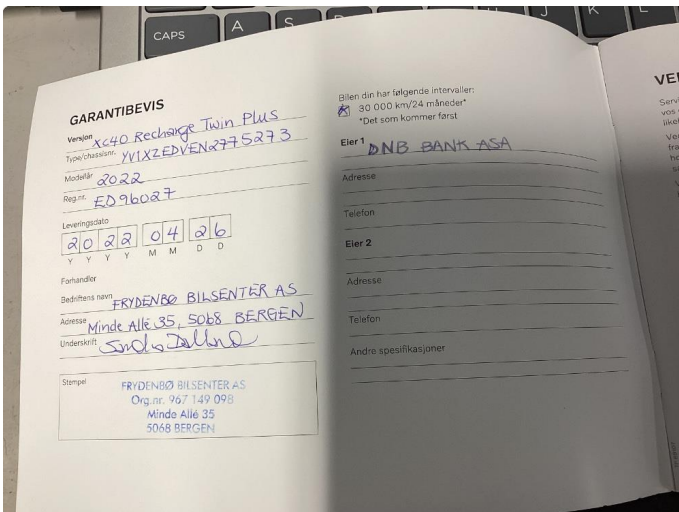 CAPS
A
S
J
K
L
GARANTIBEVIS
Versjon XC40 Recharge Twin Plus
Type/chassisnr. YV1XZEDVEN2775273
Modellår 2022
Reg.nr. ED96027
Leveringsdato
2022 04 26
Y Y Y Y M M D D
Forhandler
Bedriftens navn FRYDENBØ BILSENTER AS
Adresse Minde Allé 35, 5068 BERGEN
Underskrift
Stempel
FRYDENBØ BILSENTER AS
Org.nr. 967 149 098
Minde Allé 35
5068 BERGEN
Bilen din har følgende intervaller:
30 000 km/24 måneder*
*Det som kommer først
Eier 1 DNB BANK ASA
Adresse
Telefon
Eier 2
Adresse
Telefon
Andre spesifikasjoner